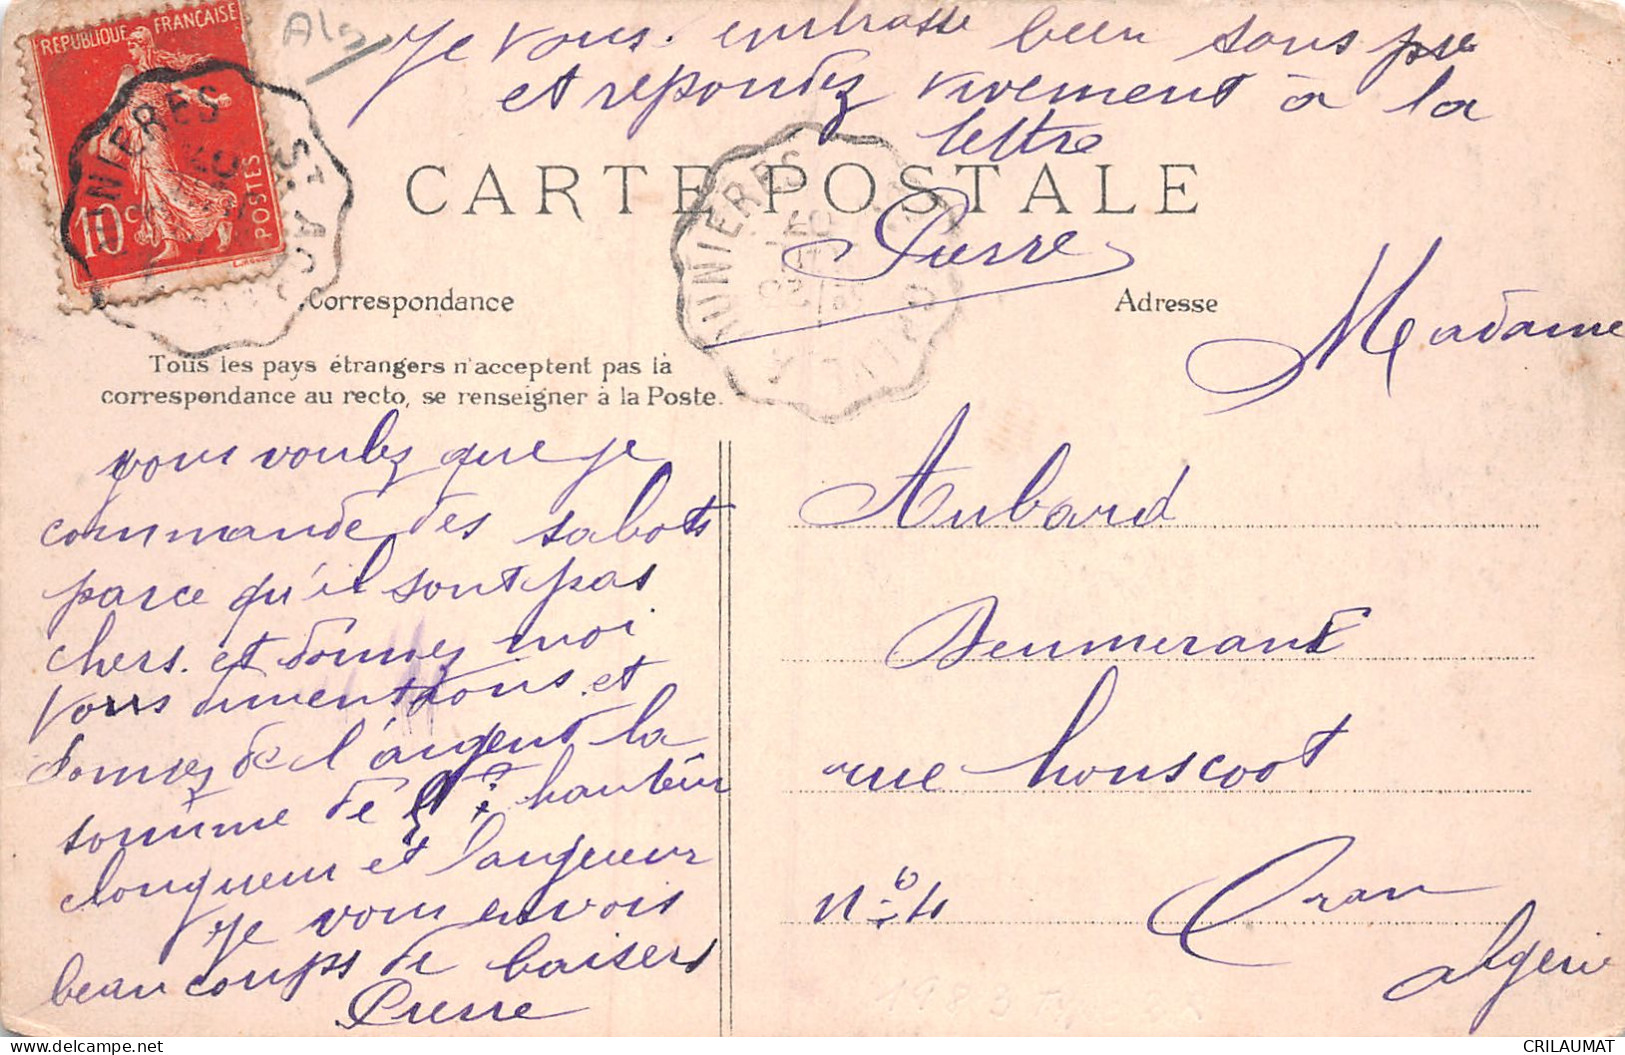 Alg
Je vous embrasse bien sans
et repondez vivement à la
lettre
REPUBLIQUE FRANÇAISE
10 c
POSTES
CARTE POSTALE
Pierre
Correspondance
Adresse
Tous les pays étrangers n'acceptent pas la
correspondance au recto, se renseigner à la Poste.
Madame
vous voulez que je
commande des sabots
parce qu'il sont pas
chers. et donnez moi
vous dimentions. et
donnez de l'argent la
somme de hauteur
longueur et largueur
Je vous envois
beaucoups de baisers
Pierre
Aubard
rue
N° 4 Oran
Algérie
CRILAUMAT